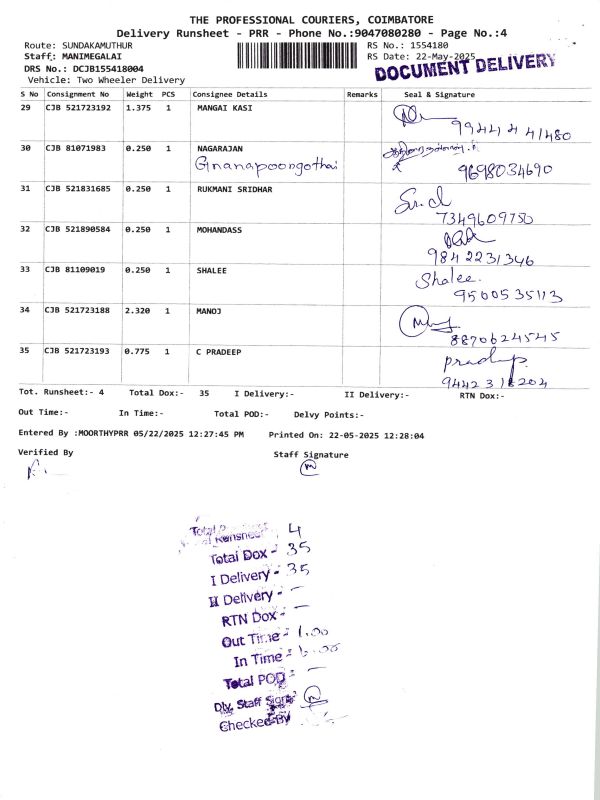 THE PROFESSIONAL COURIERS, COIMBATORE
Delivery Runsheet - PRR - Phone No.:9047080280 - Page No.:4
Route: SUNDAKAMUTHUR
RS No.: 1554180
Staff: MANIMEGALAI
RS Date: 22-May-2025
DRS No.: DCJB155418004
DOCUMENT DELIVERY
Vehicle: Two Wheeler Delivery
S No Consignment No Weight PCS Consignee Details Remarks Seal & Signature
29 CJB 521723192 1.375 1 MANGAI KASI
99444 41480
30 CJB 81071983 0.250 1 NAGARAJAN
Gnanapoongothai
9698034690
31 CJB 521831685 0.250 1 RUKMANI SRIDHAR
7349609750
32 CJB 521890584 0.250 1 MOHANDASS
9842231346
33 CJB 81109019 0.250 1 SHALEE Shalee.
9500535113
34 CJB 521723188 2.320 1 MANOJ
8870624545
35 CJB 521723193 0.775 1 C PRADEEP
9442318204
Tot. Runsheet:- 4 Total Dox:- 35 I Delivery:- II Delivery:- RTN Dox:-
Out Time:- In Time:- Total POD:- Delvy Points:-
Entered By :MOORTHYPRR 05/22/2025 12:27:45 PM Printed On: 22-05-2025 12:28:04
Verified By Staff Signature
4
Total Dox - 35
I Delivery - 35
II Delivery - -
RTN Dox - -
Out Time - 1.00
In Time - 6.00
Total POD - -
Dly. Staff Sign
Checked By